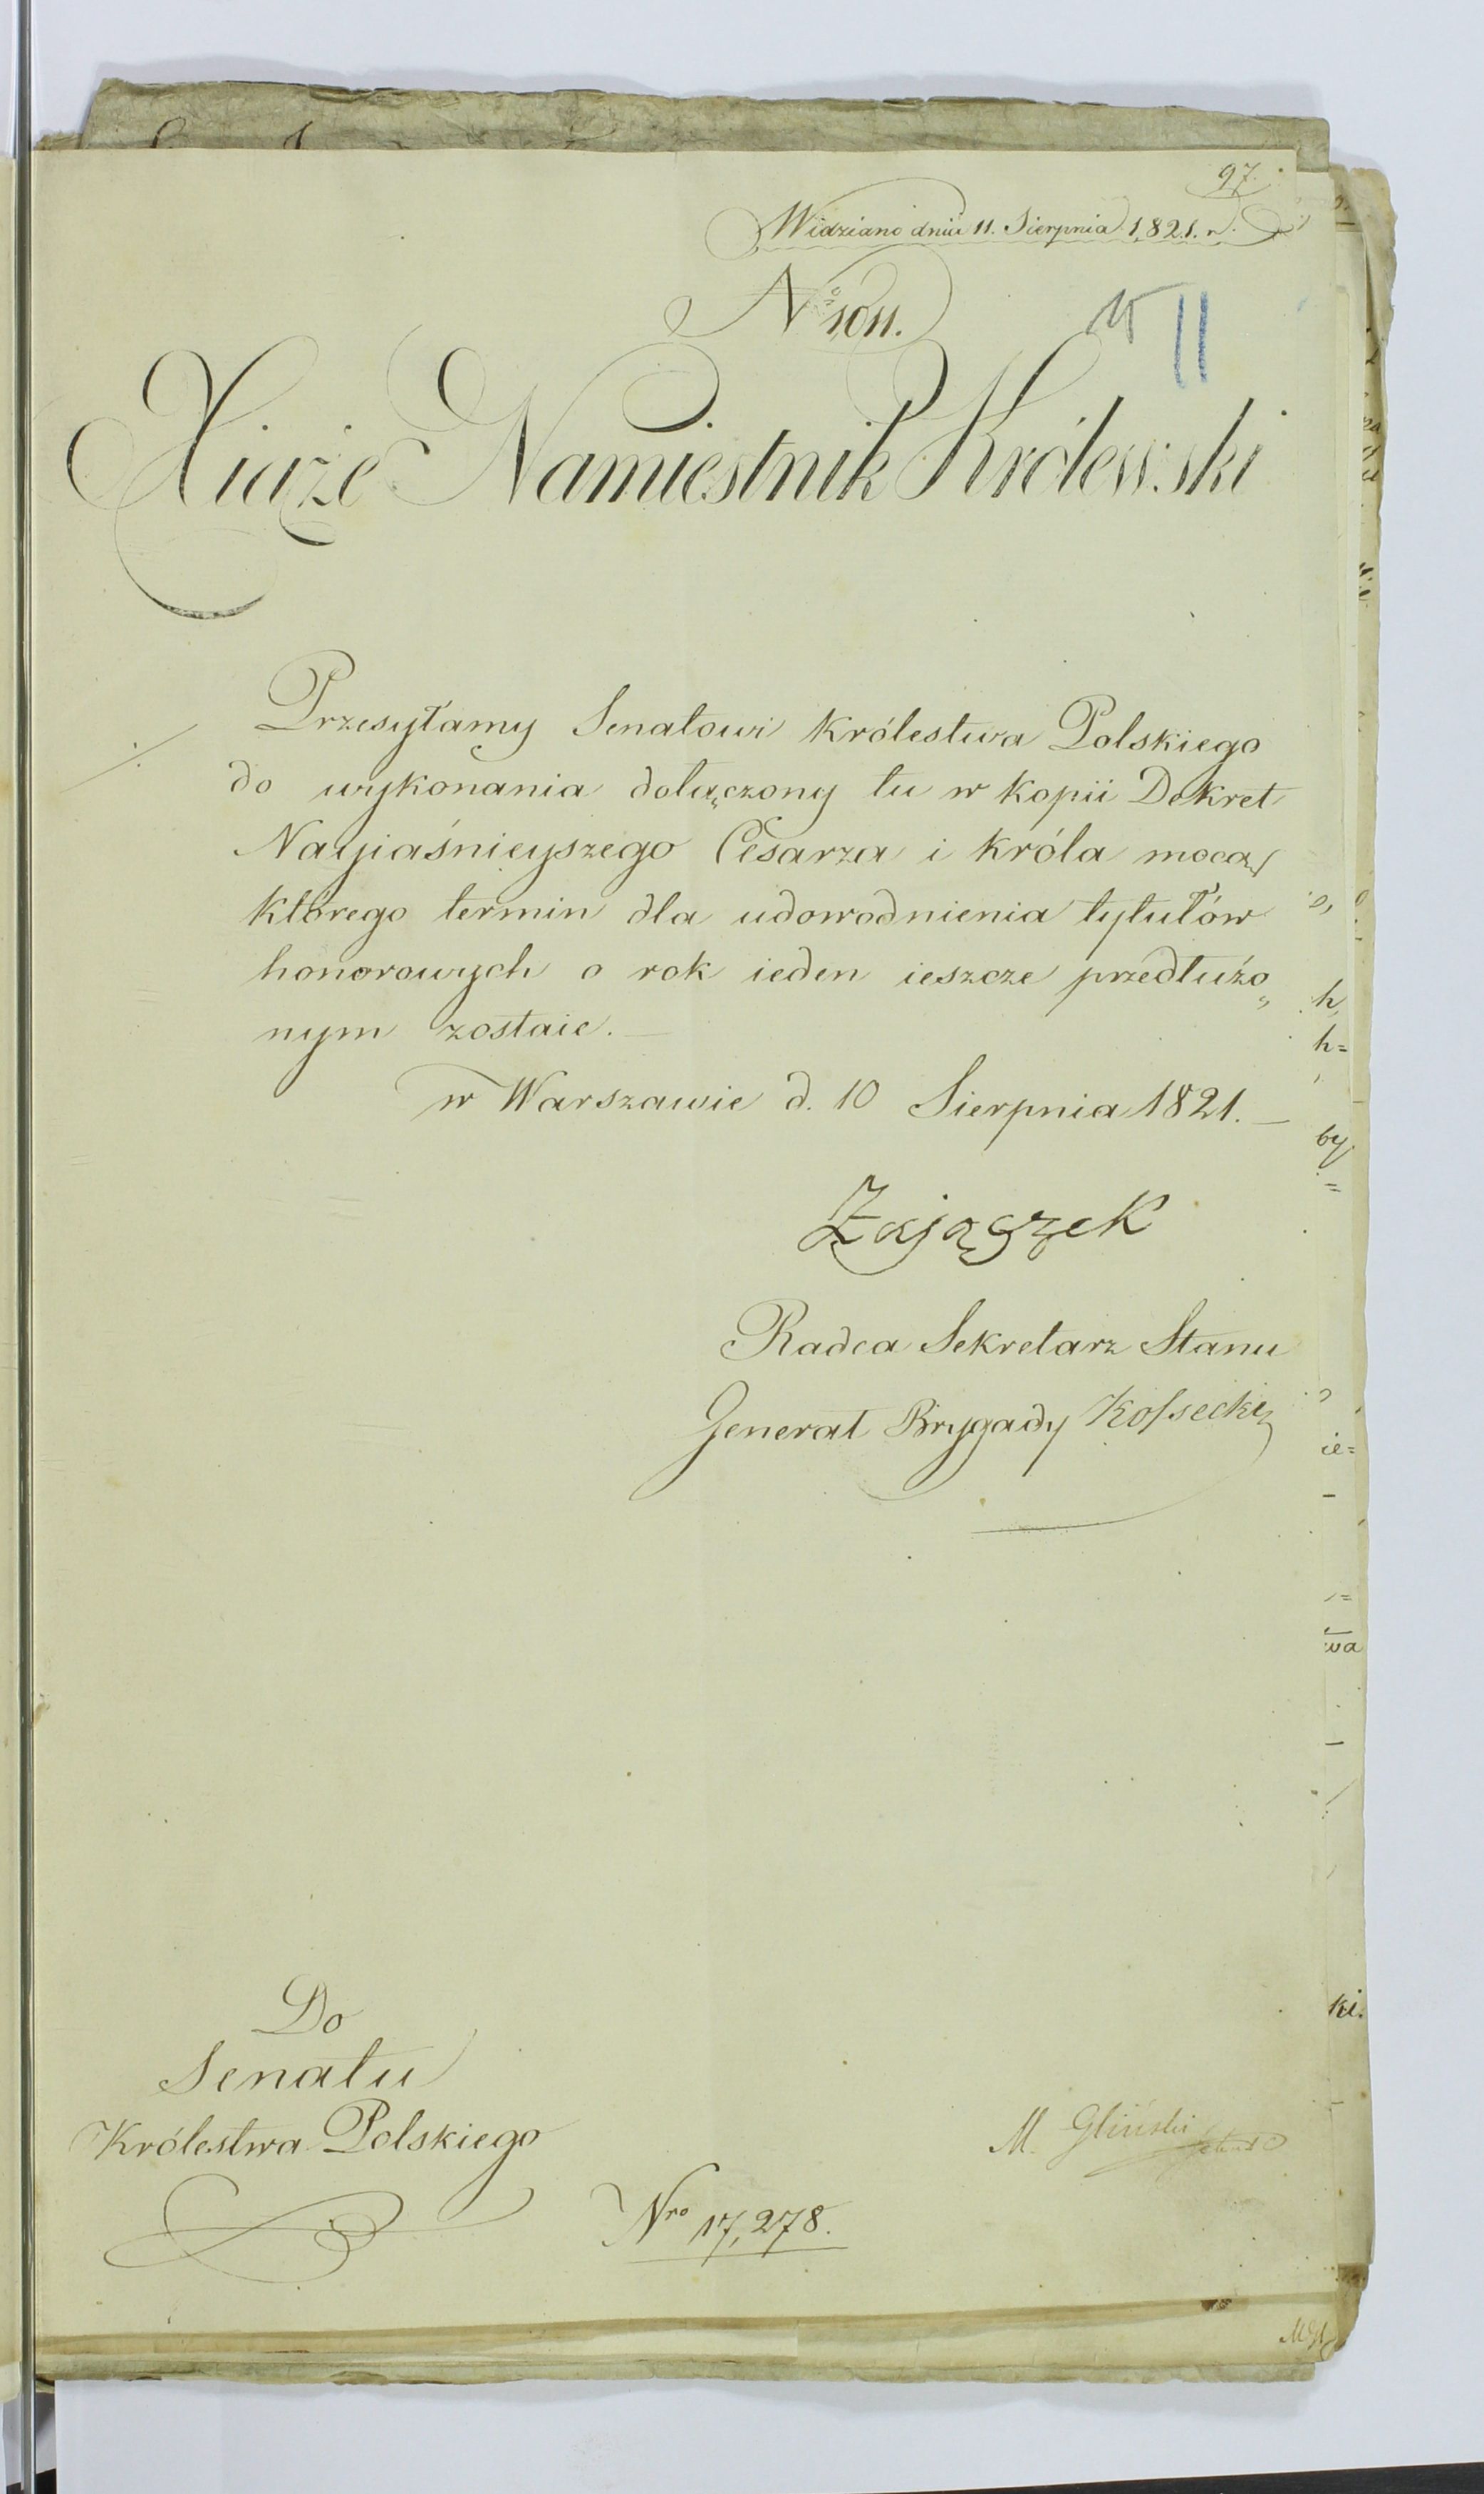 97.
Widziano dnia 11. Sierpnia 1821. r.
No 1011.
II
Xiąże Namiestnik Królewski
Przesyłamy Senatowi Królestwa Polskiego
do wykonania dołączony tu w kopii Dekret
Nayiaśnieyszego Cesarza i Króla mocą
którego termin dla udowodnienia tytułów
honorowych o rok ieden ieszcze przedłużo„
nym zostaie. —
w Warszawie d. 10 Sierpnia 1821. —
Zajączek
Radca Sekretarz Stanu
Generał Brygady Kossecki
Do
Senatu
Królestwa Polskiego
M. Gliński
Nro 17,278.